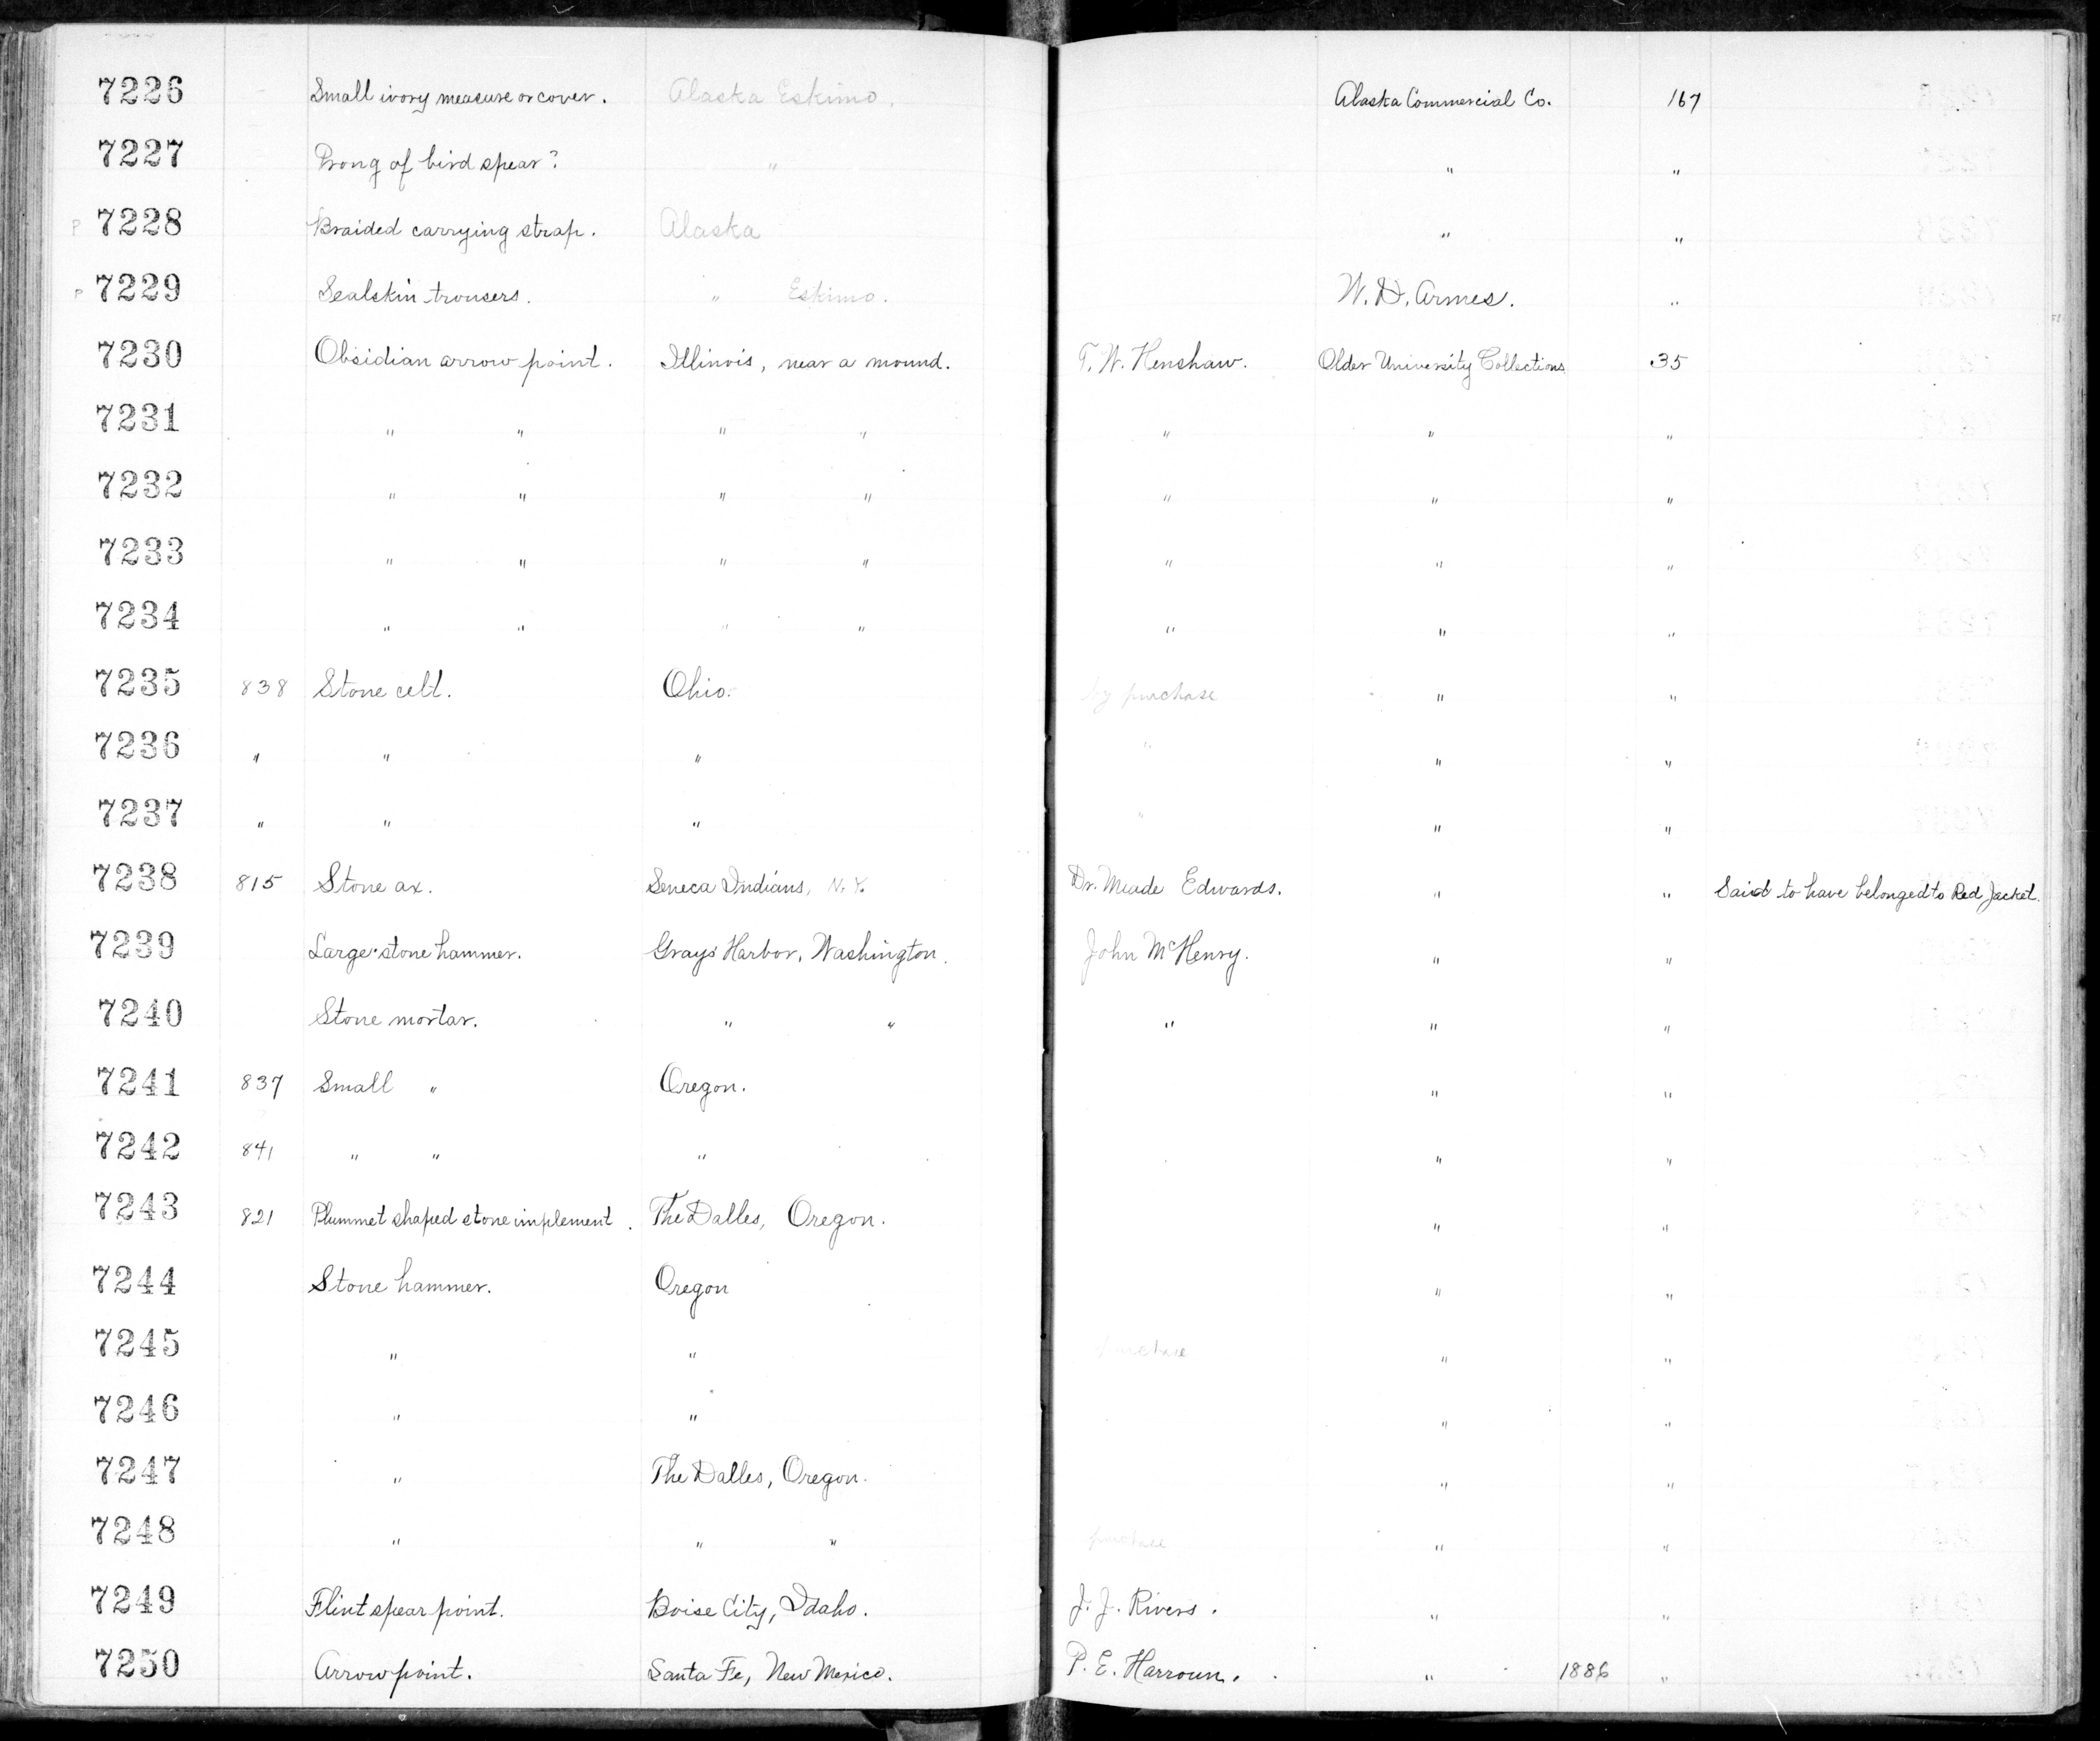 7226 Small ivory measure or cover. Alaska Eskimo. Alaska Commercial Co. 167
7227 Prong of bird spear? " " "
P 7228 Braided carrying strap. Alaska " "
P 7229 Sealskin trousers. " Eskimo. W. D. Armes. "
7230 Obsidian arrow point. Illinois, near a mound. T. W. Henshaw. Older University Collections 35
7231 " " " " " " "
7232 " " " " " " "
7233 " " " " " " "
7234 " " " " " " "
7235 838 Stone celt. Ohio. by purchase " "
7236 " " " " " "
7237 " " " " " "
7238 815 Stone ax. Seneca Indians, N.Y. Dr. Meade Edwards. " " Said to have belonged to Red Jacket.
7239 Large stone hammer. Grays Harbor, Washington. John McHenry. " "
7240 Stone mortar. " " " " "
7241 837 Small " Oregon. " "
7242 841 " " " " "
7243 821 Plummet shaped stone implement. The Dalles, Oregon. " "
7244 Stone hammer. Oregon " "
7245 " " purchase " "
7246 " " " "
7247 " The Dalles, Oregon. " "
7248 " " " purchase " "
7249 Flint spear point. Boise City, Idaho. J. J. Rivers. " "
7250 Arrow point. Santa Fe, New Mexico. P. E. Harroun. " 1886 "